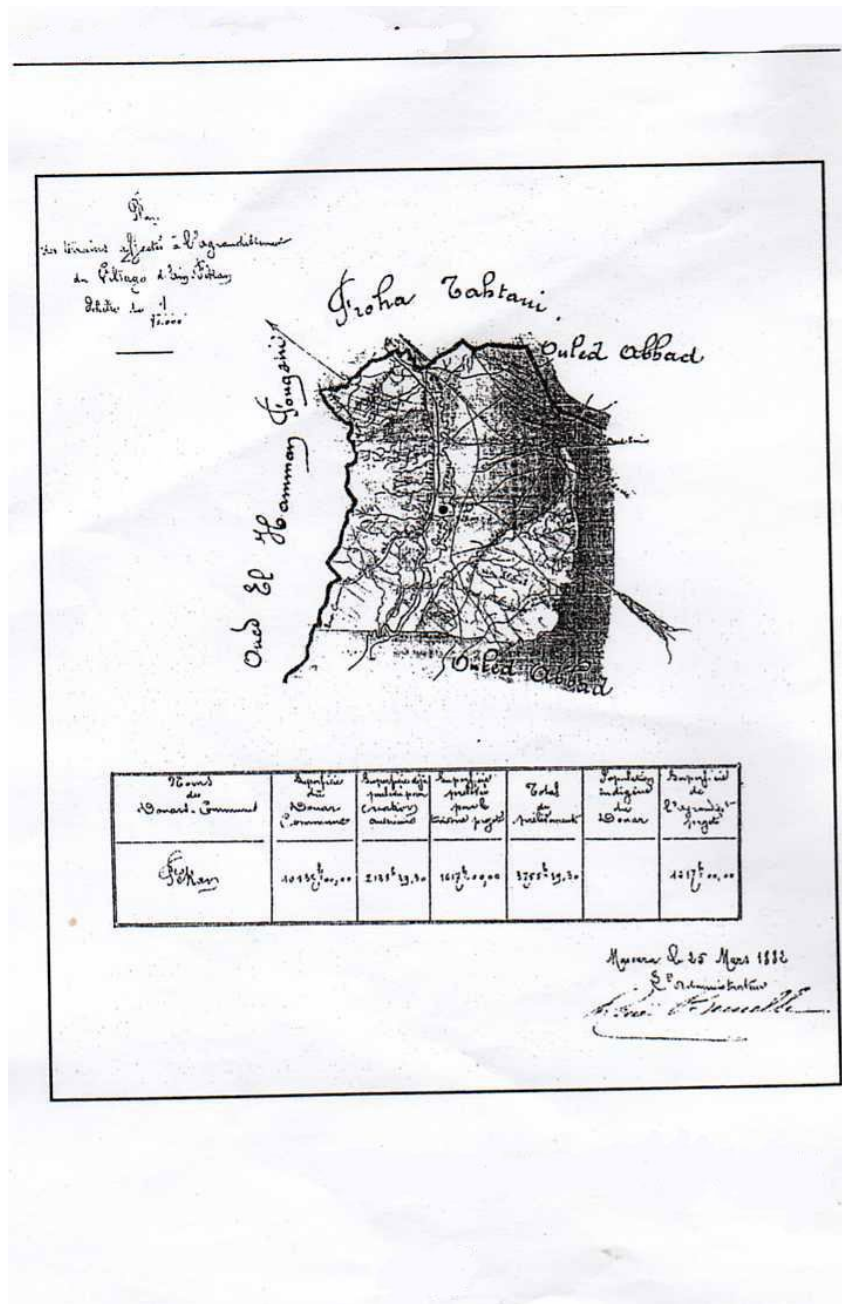 Plan
des terrains affectés à l'agrandissement
du Village d'Aïn-Fékan
Echelle de 1
Froha Tahtani.
Ouled Abbad
Oued El Hammam Fougani
Ouled Abbad
Noms des Douars-Communes
Superficie du Douar Commune
Superficie déjà création antérieure
Superficie par le projet
Total du prélèvement
Population indigène du Douar
Superficie de projeté
Fékan
2138h 29,30
1617h 00,00
3755h 29,30
Mascara le 25 Mars 1882
L'Administrateur